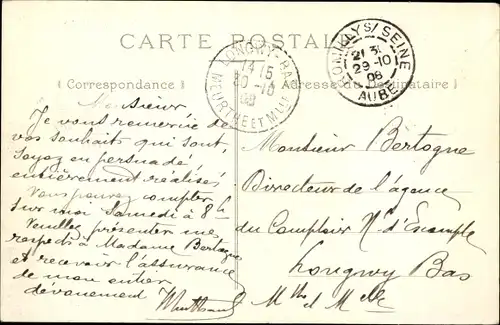 CARTE POSTALE
Correspondance
Adresse du Destinataire
LONGWY-BAS
14 15
30-10
08
MEURTHE ET MLLE
ROMILLY S/ SEINE
21 3
29-10
08
AUBE
Monsieur
Je vous remercie de
vos souhaits qui sont,
Soyez en persuadé,
entièrement réalisés
Vous pouvez compter
sur moi Samedi à 8h
Veuillez présenter mes
respects à Madame Bertogne
et recevoir l'assurance
de mon entier
dévouement
Monsieur Bertogne
Directeur de l'agence
du Comptoir N. d'Escompte
Longwy Bas
Mthe et Mlle